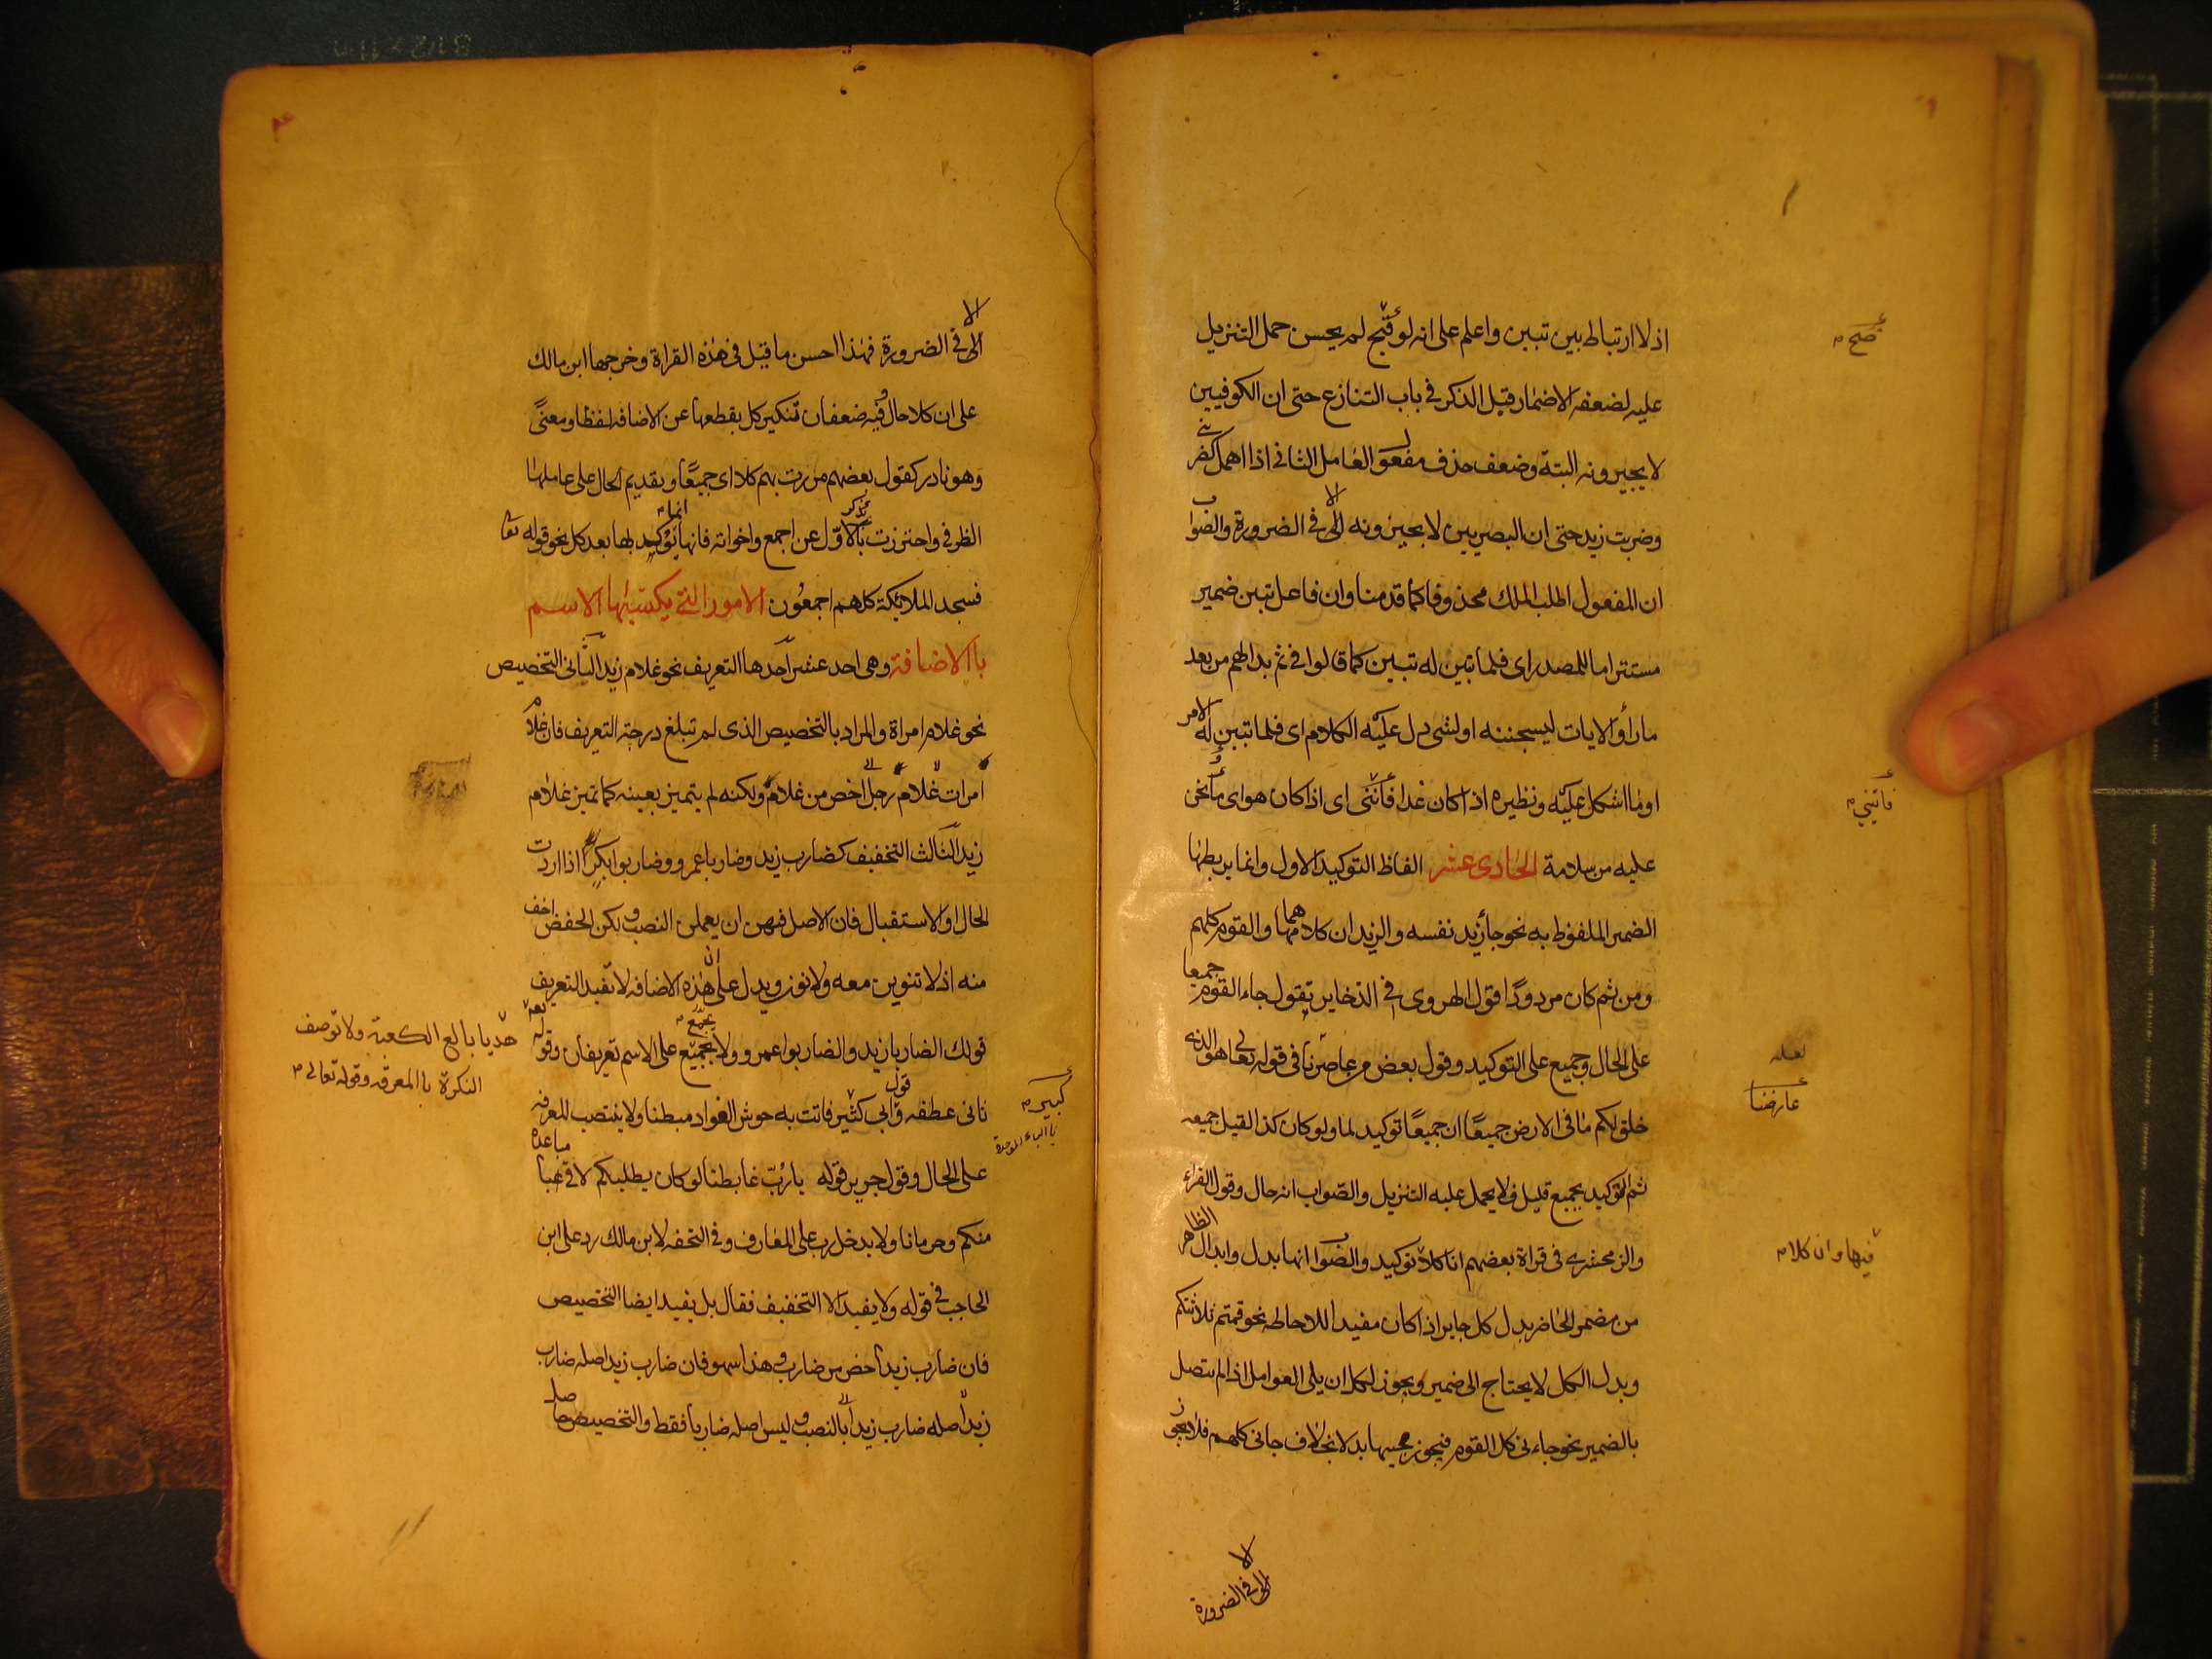 اذ لا ارتباط بين تبين واعلم على انه لو قبح لم يحسن حمل التنزيل
صح
عليه لضعفه الاضمار قبل الذكر في باب التنازع حتى ان الكوفيين
لا يجيرونه البتة وضعف حذف مفعول العامل الثاني اذا اهمل كضربني
وضربت زيد حتى ان البصريين لا يجيزونه الا في الضرورة والصواب
ان المفعول اطلب الملك محذوفا كما قدمنا وان فاعل تبين ضمير
مستتر اما للمصدر اى فلما تبين له تبين كما قالوا في ثم بدا لهم من بعد
ما رأوا الايات ليسجننه او لشى دل عليه الكلام اى فلما تبين له الامر
او ما اشكل عليه ونظيره اذا كان غدا فأتنى اى اذا كان هو اى ما نحن
فأتيني
عليه من سلامة الحادى عشر الفاظ التوكيد الاول وانما يربطها
الضمير الملفوظ به نحو جأ زيد نفسه والزيدان كلاهما والقوم كلهم
ومن ثم كان مردودًا قول الهروى في الذخاير تقول جاء القوم جميعا
على الحال وجميع على التوكيد وقول بعض من عاصرنا في قوله تعالى هو الذى
لعله
عارضنا
خلق لكم ما في الارض جميعًا ان جميعًا توكيد لما ولو كان كذا لقيل جميعه
ثم التوكيد بجميع قليل فلا يحمل عليه التنزيل والصواب انه حال وقول الفراء
والزمخشرى في قراة بعضهم انا كلا توكيد والصواب انها بدل وابدال الظاهر
فيها وان كلام
من مضمر الحاضر بدل كل جايز اذا كان مفيدا للاحاطه نحو قمتم ثلاثتكم
وبدل الكل لا يحتاج الى ضمير ويجوز لكل ان يلى العوامل اذا لم يتصل
بالضمير نحو جاءنى كل القوم فيجوز مجيها بدلا بخلاف جانى كلهم فلا يجوز
الا في الضرورة
الا في الضرورة فهذا احسن ما قيل في هذه القراة وخرجها ابن مالك
على ان كلا حال وفيه ضعفان تنكير كل بقطعها عن الاضافه لفظا ومعنىً
وهو نادر كقول بعضهم مررت بهم كلا اى جميعًا وتقديم الحال على عاملها
الظرفي واحترزت بذكر الاول عن اجمع واخواته فانها انما يؤكد بها بعد كل نحو قوله تعا
فسجد الملائكة كلهم اجمعون الامور التي يكتسبها الاسم
باالاضافة وهى احد عشر احدها التعريف نحو غلام زيد الثانى التخصيص
نحو غلام امراة والمراد بالتخصيص الذى لم تبلغ درجة التعريف فان غلام
امرات غلام رجل اخص من غلام ولكنه لم يتميز بعينه كما تميز غلام
زيد الثالث التخفيف كضارب زيد وضاربا عمرو وضاربوا بكر اذا اردت
الحال او الاستقبال فان الاصل فيهن ان يعملن النصب ولكن الخفض اخف
منه اذ لا تنوين معه ولا نون ويدل على ان هذه الاضافه لا تفيد التعريف
قولك الضاربا زيد والضاربوا عمرو ولا يجمع على الاسم تعريفان وقوله تعا
هديا بالغ الكعبة ولا توصف
النكرة باالمعرفه وقوله تعالى
ثانى عطفه وقول ابي كثير فاتت به حوش الفواد مبطنا ولا ينتصب المعرفه
كبير
باالباء الموحدة
على الحال وقول جرير قوله يا رُبّ غابطنا لو كان يطلبكم لاقى مباعدة
منكم وحرمانا ولا يدخل رب على المعارف وفى التحفه لابن مالك رد على ابن
الحاجب في قوله ولا يفيد الا التخفيف فقال بل يفيد ايضا التخصيص
فان ضارب زيد اخص من ضارب وهذا سهو فان ضارب زيد اصله ضارب
زيدا اصله ضارب زيدا بالنصب وليس اصله ضاربا فقط والتخصيص حاصل